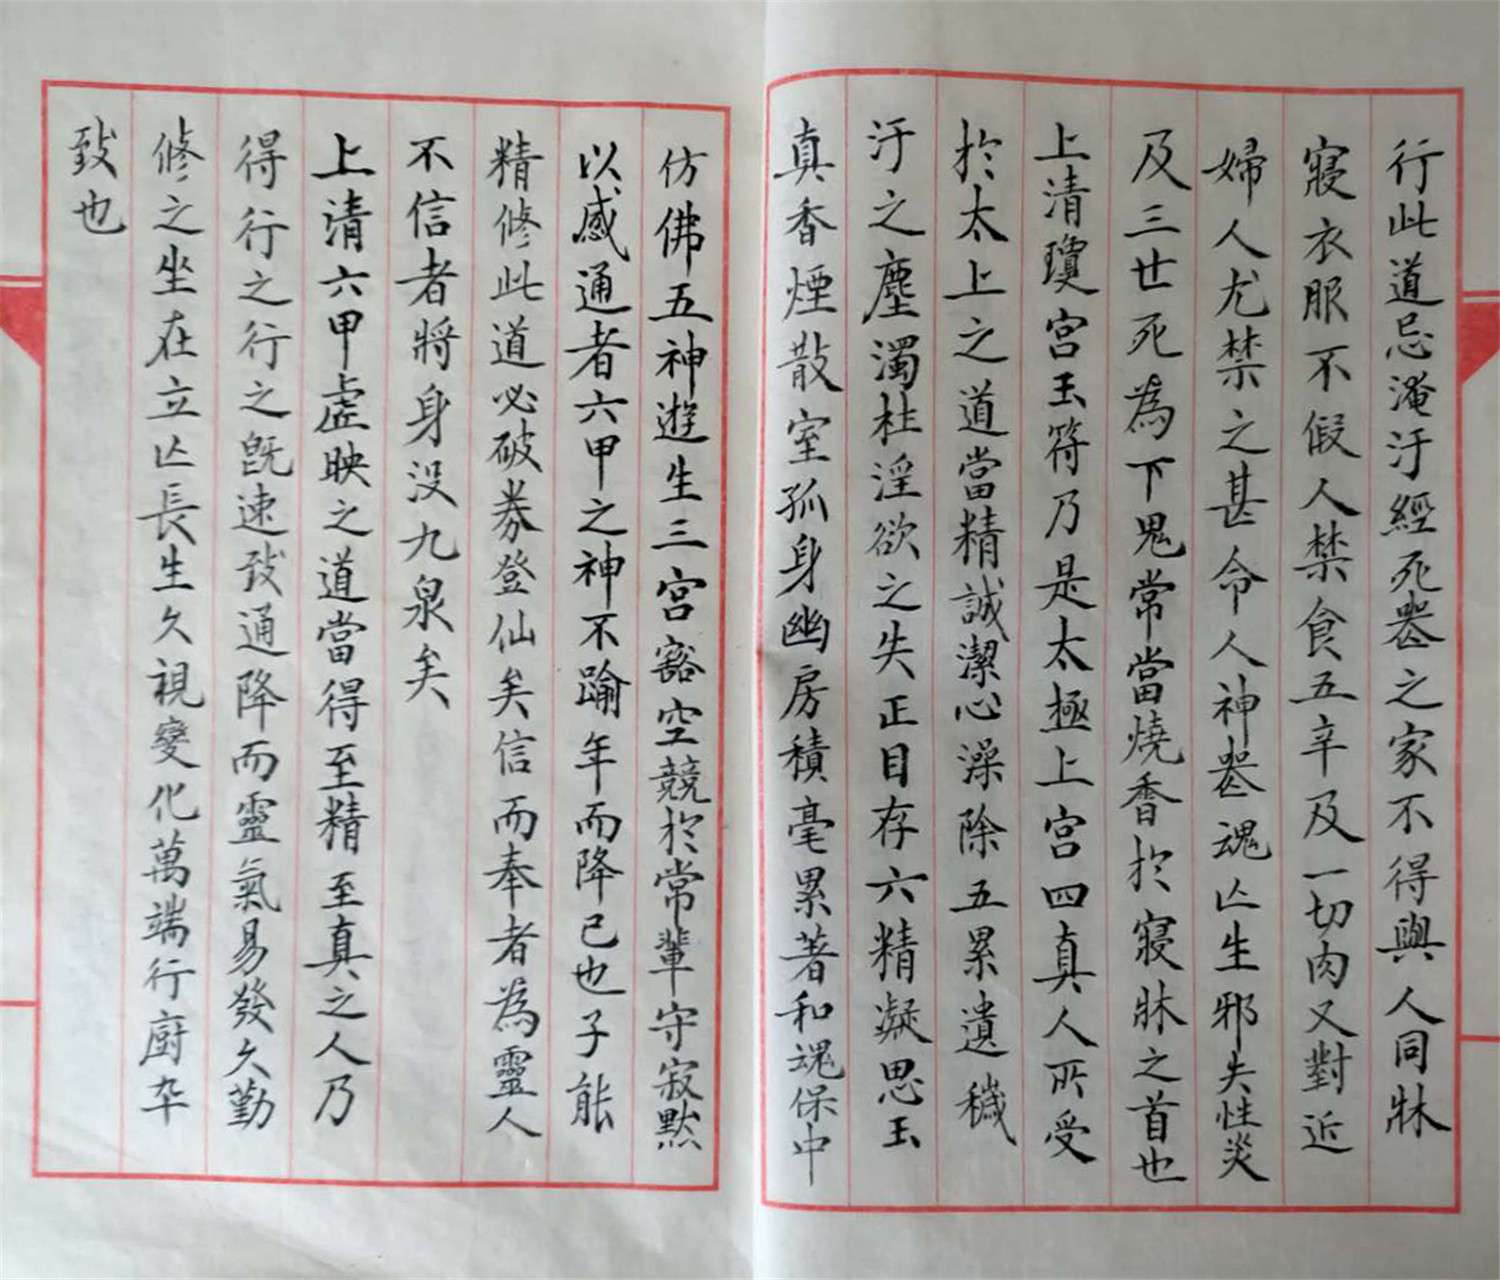 行此道忌淹汙經死喪之家不得與人同牀
寢衣服不假人禁食五辛及一切肉又對近
婦人尤禁之甚令人神喪魂亡生邪失性災
及三世死為下鬼常當燒香於寢牀之首也
上清瓊宮玉符乃是太極上宮四真人所受
於太上之道當精誠潔心澡除五累遺穢
汙之塵濁杜淫欲之失正目存六精凝思玉
真香煙散室孤身幽房積毫累著和魂保中
仿佛五神遊生三宮豁空競於常輩守寂默
以感通者六甲之神不踰年而降已也子能
精修此道必破券登仙矣信而奉者為靈人
不信者將身沒九泉矣
上清六甲虛映之道當得至精至真之人乃
得行之行之既速致通降而靈氣易發久勤
修之坐在立亡長生久視變化萬端行廚卒
致也